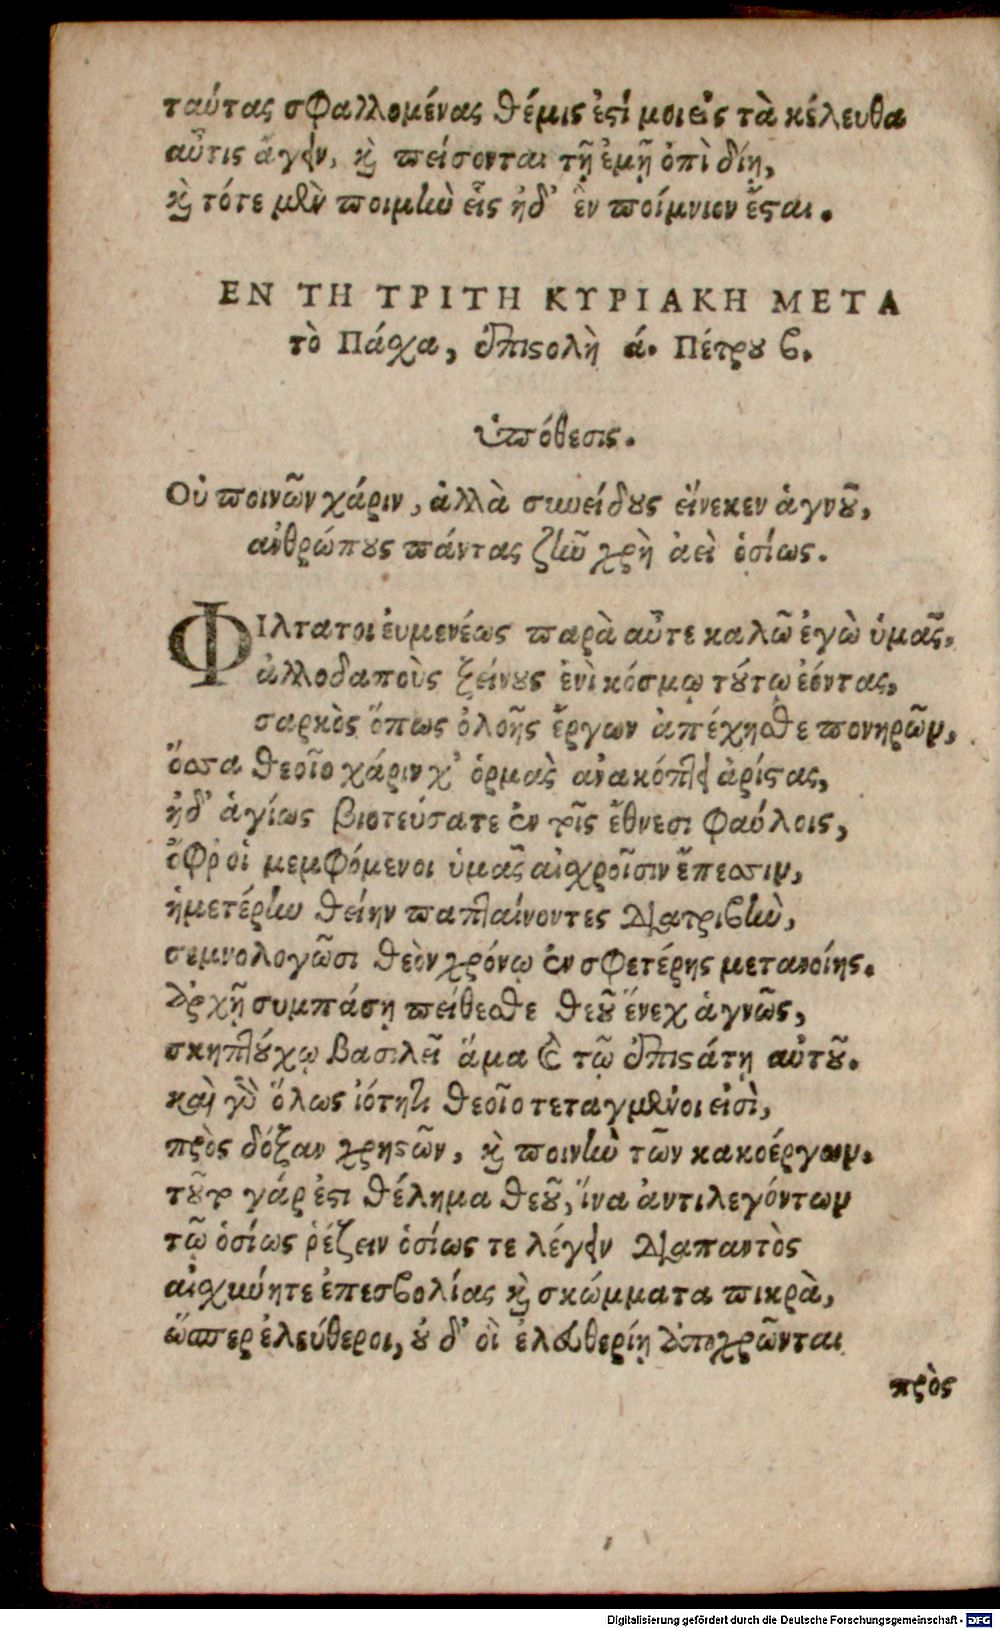 ταύτας σφαλλομένας θέμις ἐστί μοι εἰς τὰ κέλευθα
αὖτις ἄγειν, καὶ πείσονται τῇ ἐμῇ ὀπὶ δίῃ,
καὶ τότε μὲν ποιμὴν εἷς ἠδ' ἓν ποίμνιον ἔσται.
ΕΝ ΤΗ ΤΡΙΤΗ ΚΥΡΙΑΚΗ ΜΕΤΑ
τὸ Πάσχα, ἐπιστολὴ ά. Πέτρου β.
ὑπόθεσις.
Οὐ ποινῶν χάριν, ἀλλὰ συνείδους εἵνεκεν ἁγνοῦ,
ἀνθρώπους πάντας ζῆν χρὴ ἀεὶ ὁσίως.
ΦΙλτατοι εὐμενέως παρὰ αὖτε καλῶ ἐγὼ ὑμᾶς,
ἀλλοδαποὺς ξείνους ἐνὶ κόσμῳ τούτῳ ἐόντας,
σαρκὸς ὅπως ὀλοῆς ἔργων ἀπέχησθε πονηρῶν,
ὅσσα θεοῖο χάριν χ' ὁρμὰς ἀνακόπτει ἀρίστας,
ἠδ' ἁγίως βιοτεύσατε ἐν τοῖς ἔθνεσι φαύλοις,
ὄφρ οἱ μεμφόμενοι ὑμᾶς αἰσχροῖσιν ἔπεσσιν,
ἡμετέρην θείην παπταίνοντες διατριβὴν,
σεμνολογῶσι θεὸν χρόνῳ ἐν σφετέρης μετανοίης.
ἀρχῇ συμπάσῃ πείθεσθε θεοῦ ἕνεχ ἁγνῶς,
σκηπτούχῳ βασιλεῖ ἅμα καὶ τῷ ἐπιστάτῃ αὐτοῦ.
καὶ γὰρ ὅλως ἰότητι θεοῖο τεταγμένοι εἰσὶ,
πρὸς δόξαν χρηστῶν, καὶ ποινὴν τῶν κακοέργων.
τοῦτο γάρ ἐστι θέλημα θεοῦ, ἵνα ἀντιλεγόντων
τῷ ὁσίως ῥέζειν ὁσίως τε λέγειν διαπαντὸς
αἰσχύνητε ἐπεσβολίας καὶ σκώμματα πικρὰ,
ὥσπερ ἐλεύθεροι, οὐ δ' οἳ ἐλευθερίῃ ἀποχρῶνται
πρὸς
Digitalisierung gefördert durch die Deutsche Forschungsgemeinschaft - DFG